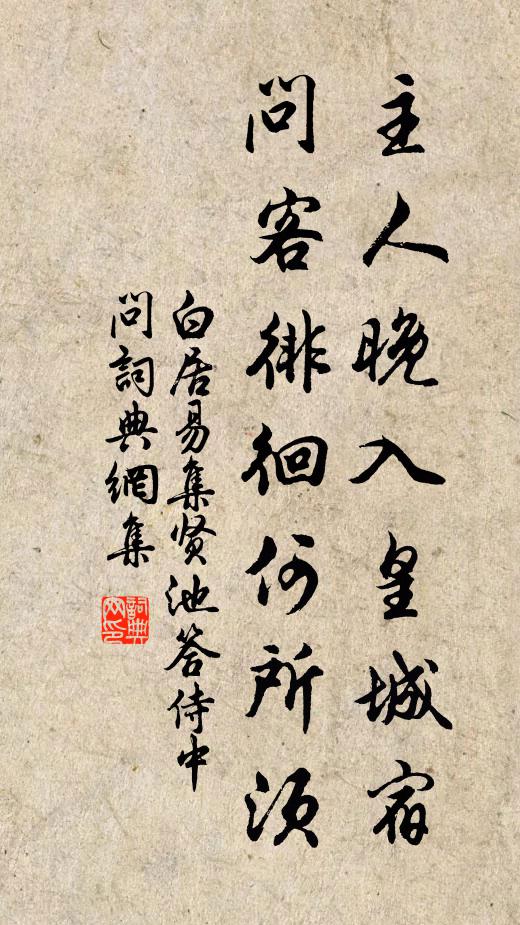 主人晚入皇城宿
问客徘徊何所须
白居易集贤池答侍中
问詞典網集
詞典
网印